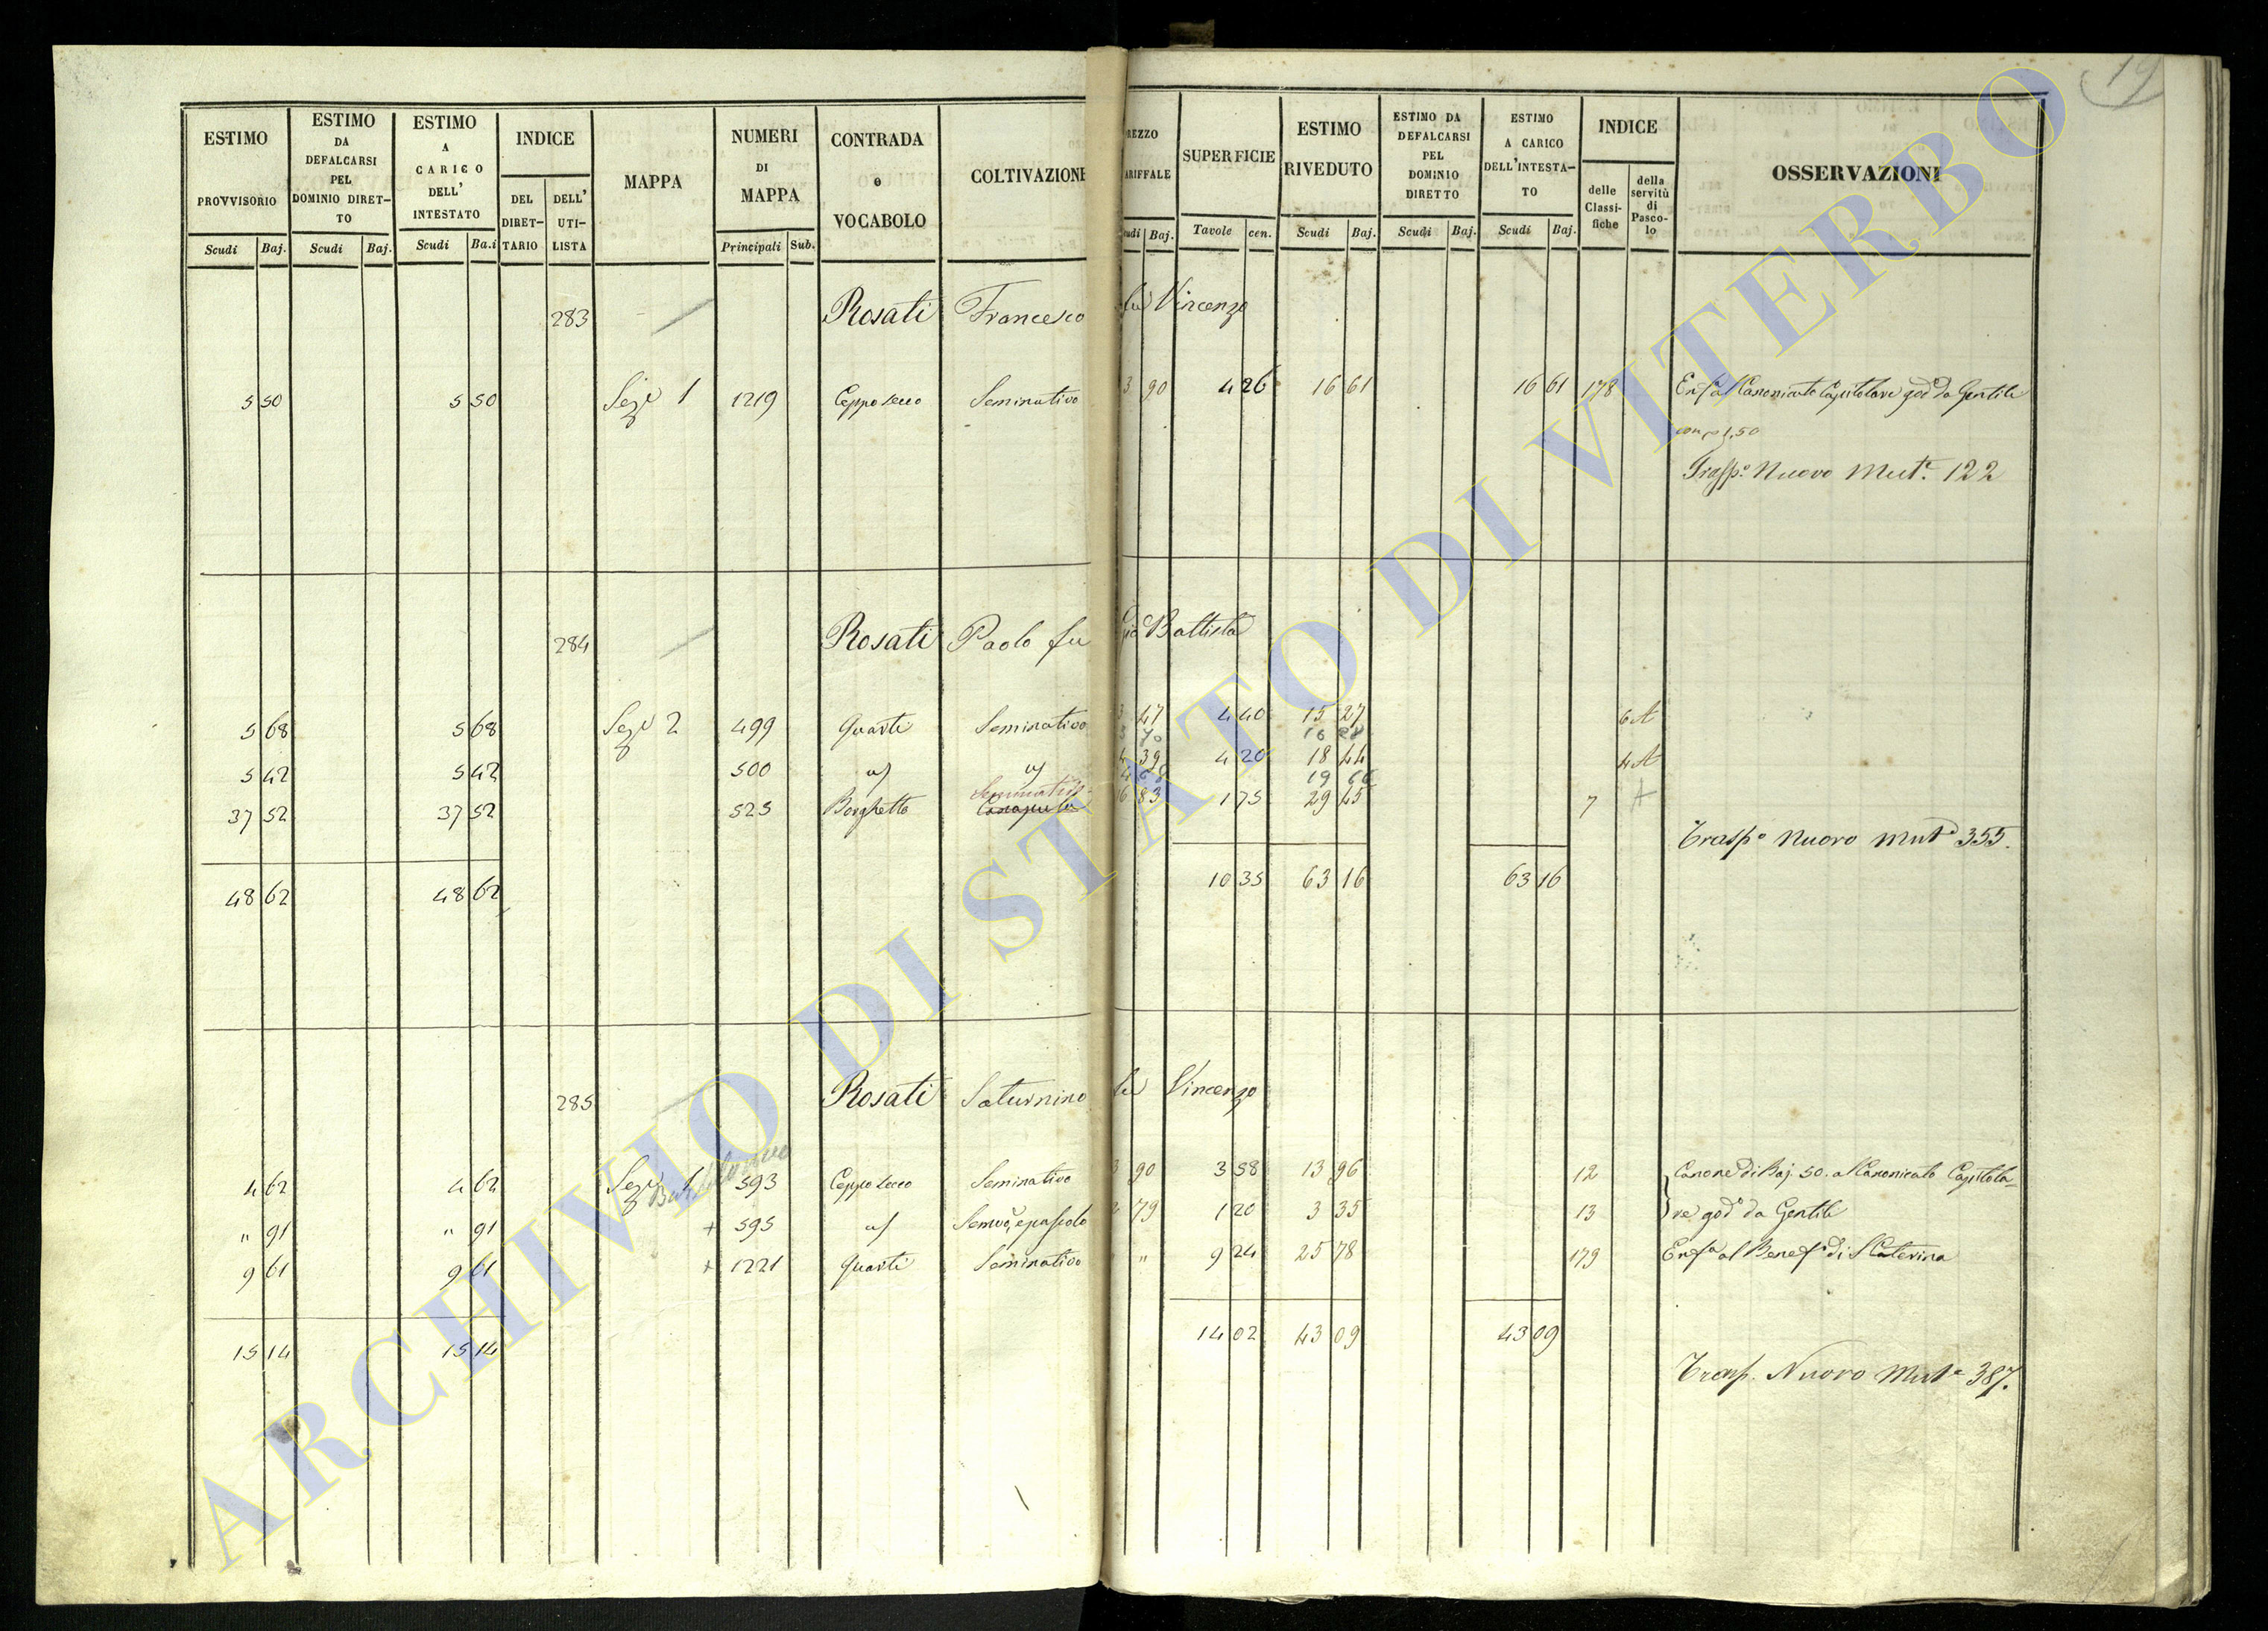 19
ESTIMO PROVVISORIO | ESTIMO DA DEFALCARSI PEL DOMINIO DIRET-TO | ESTIMO A CARICO DELL' INTESTATO | INDICE | MAPPA | NUMERI DI MAPPA | CONTRADA o VOCABOLO | COLTIVAZIONE | REZZO ARIFFALE | SUPERFICIE | ESTIMO RIVEDUTO | ESTIMO DA DEFALCARSI PEL DOMINIO DIRETTO | ESTIMO A CARICO DELL'INTESTA-TO | INDICE | OSSERVAZIONI
DEL DIRET-TARIO | DELL' UTI-LISTA | delle Classi-fiche | della servitù di Pasco-lo
Scudi | Baj. | Scudi | Baj. | Scudi | Ba.i | Principali | Sub. | udi | Baj. | Tavole | cen. | Scudi | Baj. | Scudi | Baj. | Scudi | Baj.
283 Rosati Francesco fu Vincenzo
5 50 | 5 50 | Sez.e 1 | 1219 | Ceppo secco | Seminativo | 3 90 | 4 26 | 16 61 | 16 61 | 178 | Enf.a al Canonicato Capitolare god.o da Gentile
con 1,50
Trasp.o Nuovo Mut.e 122
284 Rosati Paolo fu Gio Battista
5 68 | 5 68 | Sez.e 2 | 499 | Quarti | Seminativo | 3 47 | 4 40 | 15 27 | 6 A
3 70 | 16 28
5 42 | 5 42 | 500 | " | " | 4 39 | 4 20 | 18 44 | 4 A
4 68 | 19 66
Seminativo
37 52 | 37 52 | 525 | Borghetto | 16 83 | 1 75 | 29 45 | 7 | A
Trasp.o Nuovo Mut.e 355.
48 62 | 48 62 | 10 35 | 63 16 | 63 16
285 Rosati Saturnino fu Vincenzo
4 62 | 4 62 | Sez.e 1 | 593 | Ceppo secco | Seminativo | 3 90 | 3 58 | 13 96 | 12 | Canone di Baj. 50. al Canonicato Capitola=
" 91 | " 91 | + 595 | " | Semvo e pascolo | 2 79 | 1 20 | 3 35 | 13 | re god.o da Gentile
9 61 | 9 61 | + 1221 | Quarti | Seminativo | " | 9 24 | 25 78 | 179 | Enf.a al Benef.o di S Caterina
15 14 | 15 14 | 14 02 | 43 09 | 43 09
Trasp. Nuovo Mut.e 387.
ARCHIVIO DI STATO DI VITERBO